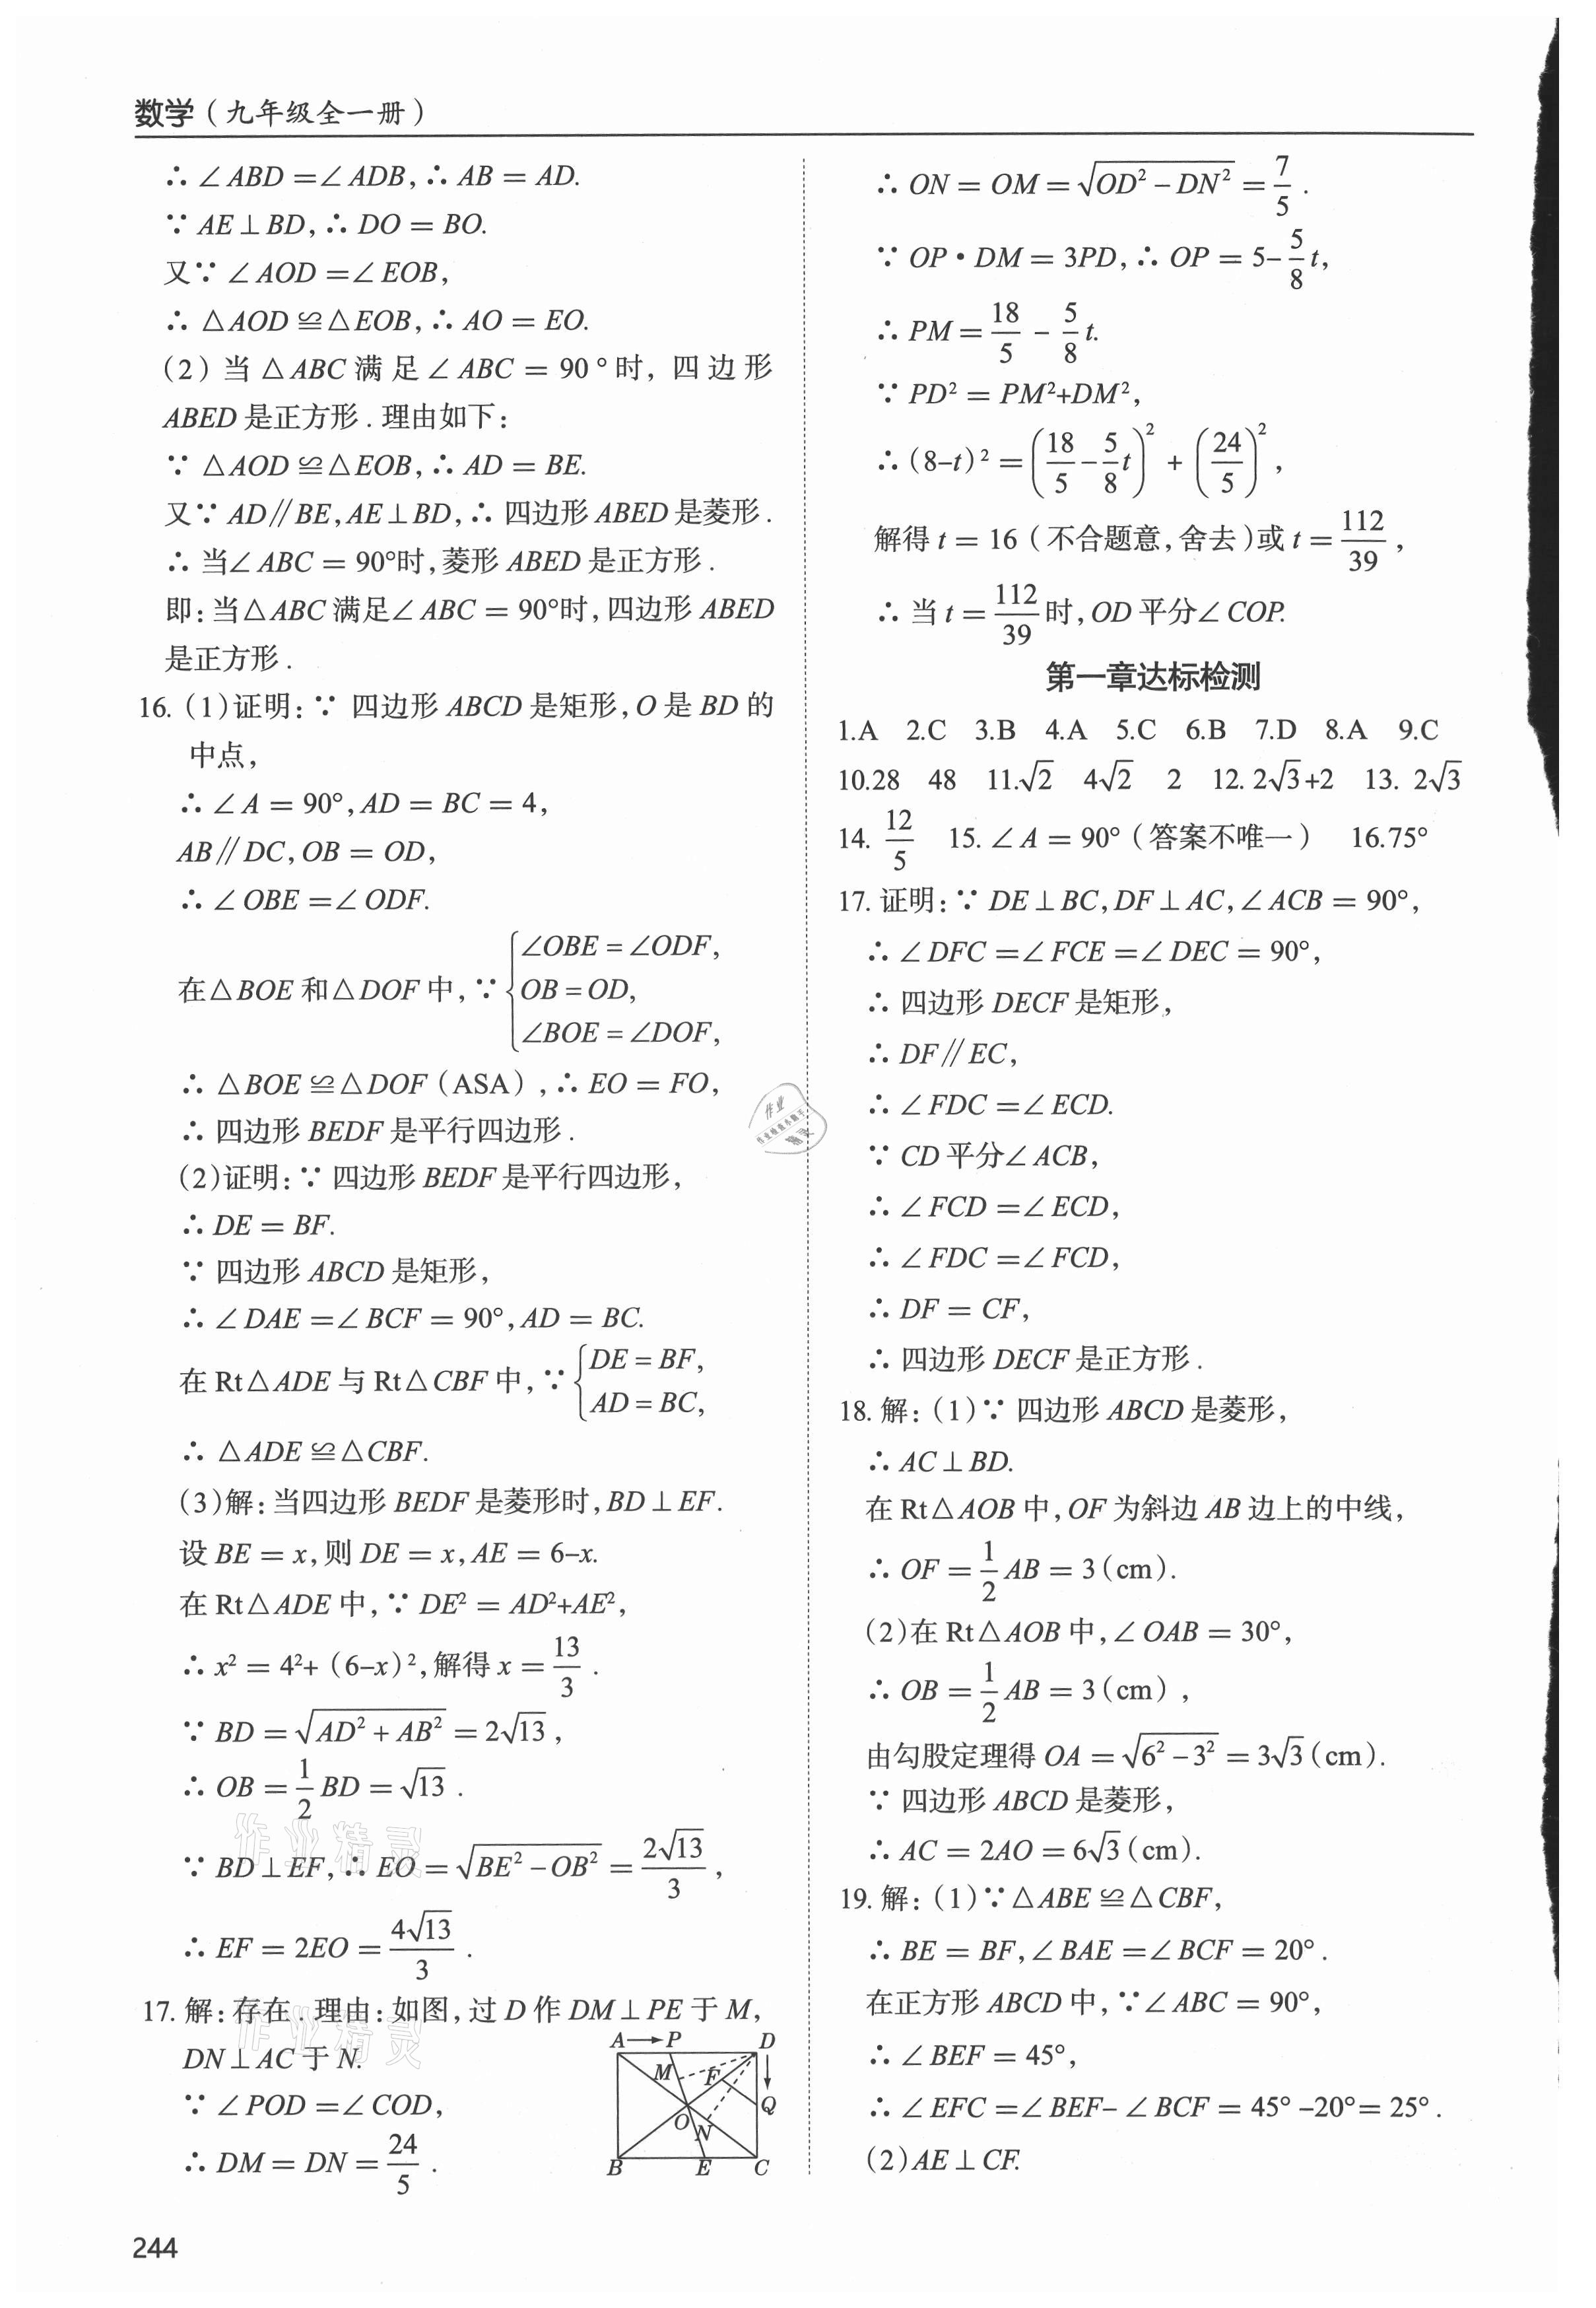 数学(九年级全一册)
∴ ∠ABD =∠ADB,∴ AB = AD.
∵ AE⊥BD,∴ DO = BO.
又∵ ∠AOD =∠EOB,
∴ △AOD≌△EOB,∴ AO = EO.
(2)当△ABC 满足∠ABC = 90°时,四边形
ABED 是正方形.理由如下:
∵ △AOD≌△EOB,∴ AD = BE.
又∵ AD∥BE,AE⊥BD,∴ 四边形 ABED 是菱形.
∴ 当∠ABC = 90°时,菱形 ABED 是正方形.
即:当△ABC 满足∠ABC = 90°时,四边形 ABED
是正方形.
16. (1)证明:∵ 四边形 ABCD 是矩形,O 是 BD 的
中点,
∴ ∠A = 90°,AD = BC = 4,
AB∥DC,OB = OD,
∴ ∠OBE =∠ODF.
在△BOE 和△DOF 中,∵ {∠OBE = ∠ODF,
OB = OD,
∠BOE = ∠DOF,
∴ △BOE≌△DOF(ASA),∴ EO = FO,
∴ 四边形 BEDF 是平行四边形.
(2)证明:∵ 四边形 BEDF 是平行四边形,
∴ DE = BF.
∵ 四边形 ABCD 是矩形,
∴ ∠DAE =∠BCF = 90°,AD = BC.
在 Rt△ADE 与 Rt△CBF 中,∵ {DE = BF,
AD = BC,
∴ △ADE≌△CBF.
(3)解:当四边形 BEDF 是菱形时,BD⊥EF.
设 BE = x,则 DE = x,AE = 6-x.
在 Rt△ADE 中,∵ DE² = AD²+AE²,
∴ x² = 4²+(6-x)²,解得 x = 13/3.
∵ BD = √(AD²+AB²) = 2√13,
∴ OB = 1/2 BD = √13.
∵ BD⊥EF,∴ EO = √(BE²-OB²) = 2√13/3,
∴ EF = 2EO = 4√13/3.
17. 解:存在.理由:如图,过 D 作 DM⊥PE 于 M,
DN⊥AC 于 N.
∵ ∠POD =∠COD,
∴ DM = DN = 24/5.
A→P D
M F
Q
O N
B E C
244
∴ ON = OM = √(OD²-DN²) = 7/5.
∵ OP·DM = 3PD,∴ OP = 5-5/8 t,
∴ PM = 18/5 - 5/8 t.
∵ PD² = PM²+DM²,
∴ (8-t)² = (18/5-5/8 t)² + (24/5)²,
解得 t = 16(不合题意,舍去)或 t = 112/39,
∴ 当 t = 112/39 时,OD 平分∠COP.
第一章达标检测
1.A 2.C 3.B 4.A 5.C 6.B 7.D 8.A 9.C
10.28 48 11.√2 4√2 2 12. 2√3+2 13. 2√3
14. 12/5 15. ∠A = 90°(答案不唯一) 16.75°
17. 证明:∵ DE⊥BC,DF⊥AC,∠ACB = 90°,
∴ ∠DFC =∠FCE =∠DEC = 90°,
∴ 四边形 DECF 是矩形,
∴ DF∥EC,
∴ ∠FDC =∠ECD.
∵ CD 平分∠ACB,
∴ ∠FCD =∠ECD,
∴ ∠FDC =∠FCD,
∴ DF = CF,
∴ 四边形 DECF 是正方形.
18. 解:(1)∵ 四边形 ABCD 是菱形,
∴ AC⊥BD.
在 Rt△AOB 中,OF 为斜边 AB 边上的中线,
∴ OF = 1/2 AB = 3(cm).
(2)在 Rt△AOB 中,∠OAB = 30°,
∴ OB = 1/2 AB = 3(cm),
由勾股定理得 OA = √(6²-3²) = 3√3(cm).
∵ 四边形 ABCD 是菱形,
∴ AC = 2AO = 6√3(cm).
19. 解:(1)∵△ABE≌△CBF,
∴ BE = BF,∠BAE =∠BCF = 20°.
在正方形 ABCD 中,∵∠ABC = 90°,
∴ ∠BEF = 45°,
∴ ∠EFC =∠BEF-∠BCF = 45°-20°= 25°.
(2)AE⊥CF.
作业精灵
作业精灵